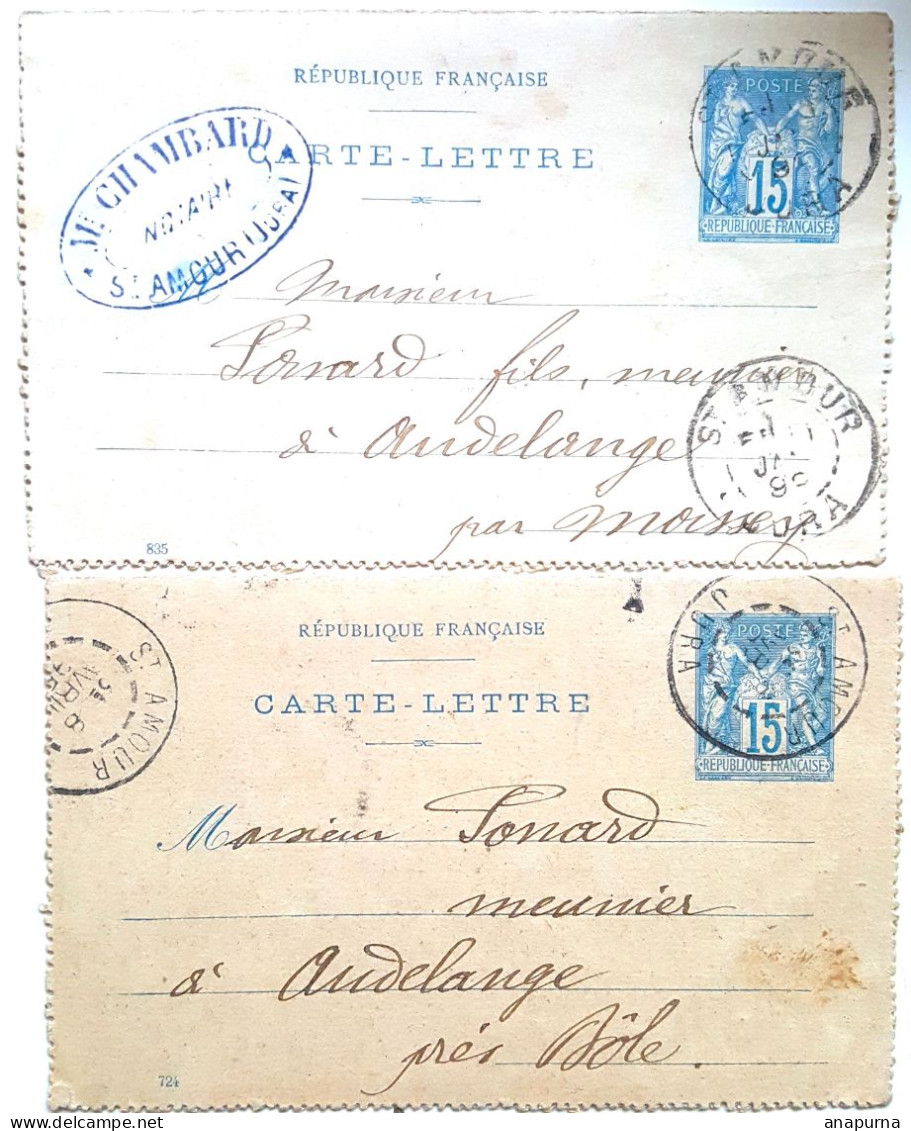 RÉPUBLIQUE FRANÇAISE
CARTE-LETTRE
POSTE
15
RÉPUBLIQUE FRANÇAISE
Me CHAMBARD
NOTAIRE
ST AMOUR (JURA)
ST AMOUR
JURA
Monsieur
Ponard fils, meunier
à Audelange
par Moissey
ST AMOUR
JURA
835
RÉPUBLIQUE FRANÇAISE
CARTE-LETTRE
POSTE
15
RÉPUBLIQUE FRANÇAISE
ST AMOUR
JURA
ST AMOUR
8
AVRIL
Monsieur Ponard
meunier
à Audelange
près Dôle.
724
delcampe.net
anapurna